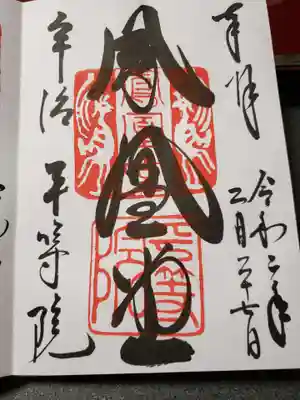 奉拝
令和二年
二月二十七日
鳳凰堂
宇治 平等院